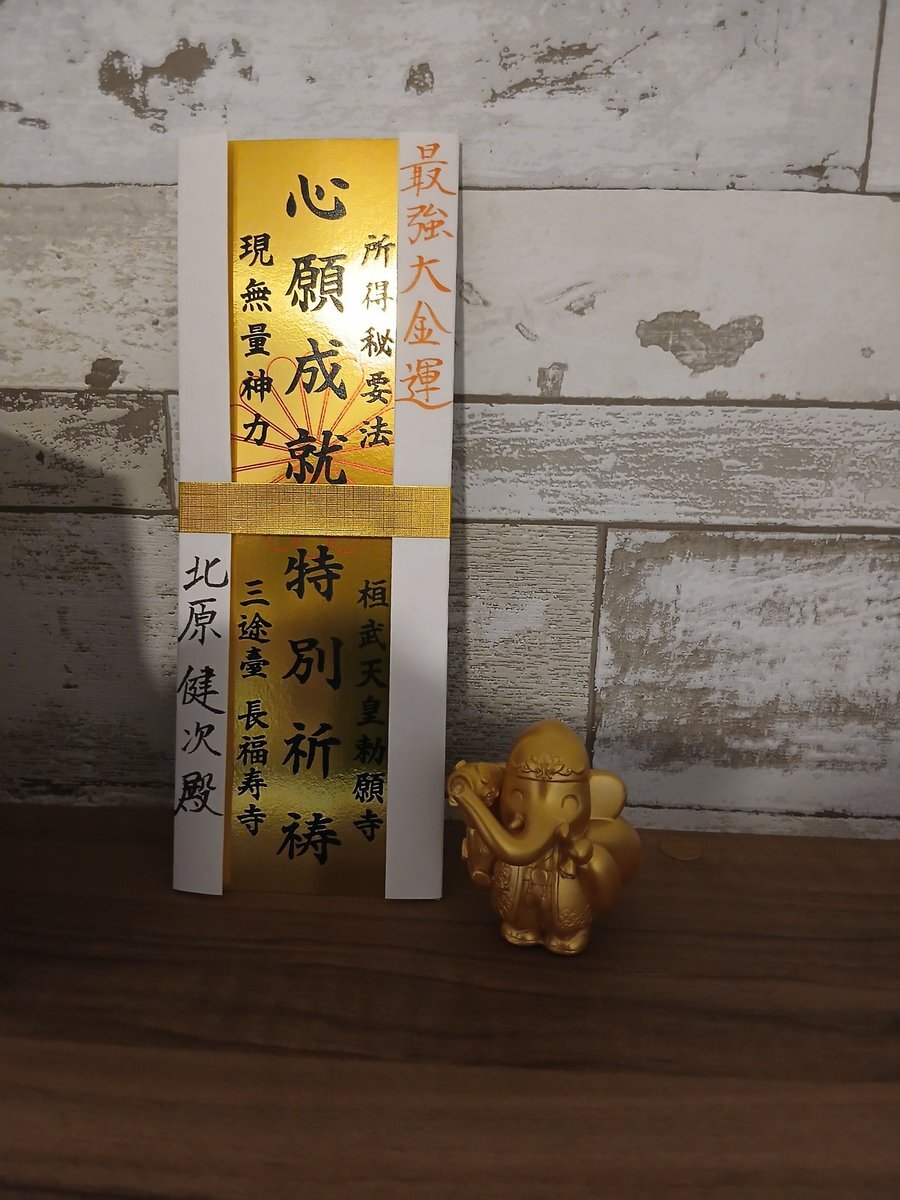 最強大金運
所得秘要法
心願成就
現無量神力
桓武天皇勅願寺
特別祈祷
三途臺 長福寿寺
北原健次殿